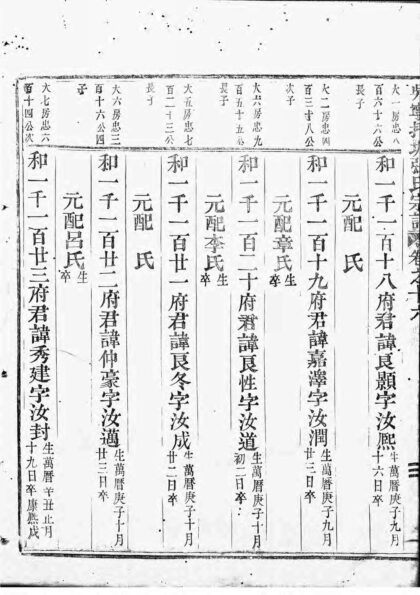 大一房忠九
百六十六公
長子
和一千一百十八府君諱良顥字汝熈
生萬曆庚子九月
十六日卒
元配 氏
大二房忠一
百三十八公
次子
和一千一百十九府君諱嘉澤字汝潤
生萬曆庚子九月
廿三日卒
元配章氏
生
卒
大六房忠九
百五十五公
長子
和一千一百二十府君諱良性字汝道
生萬曆庚子十月
初二日卒
元配李氏
生
卒
大五房忠七
百二十三公
長子
和一千一百廿一府君諱良冬字汝成
生萬曆庚子十月
廿二日卒
元配 氏
大六房忠四
百十六公三
子
和一千一百廿二府君諱仲豪字汝邁
生萬曆庚子十月
廿三日卒
元配呂氏
生
卒
大七房忠六
百十四公次
和一千一百廿三府君諱秀建字汝封
生萬曆辛丑正月
十九日卒康熙戊